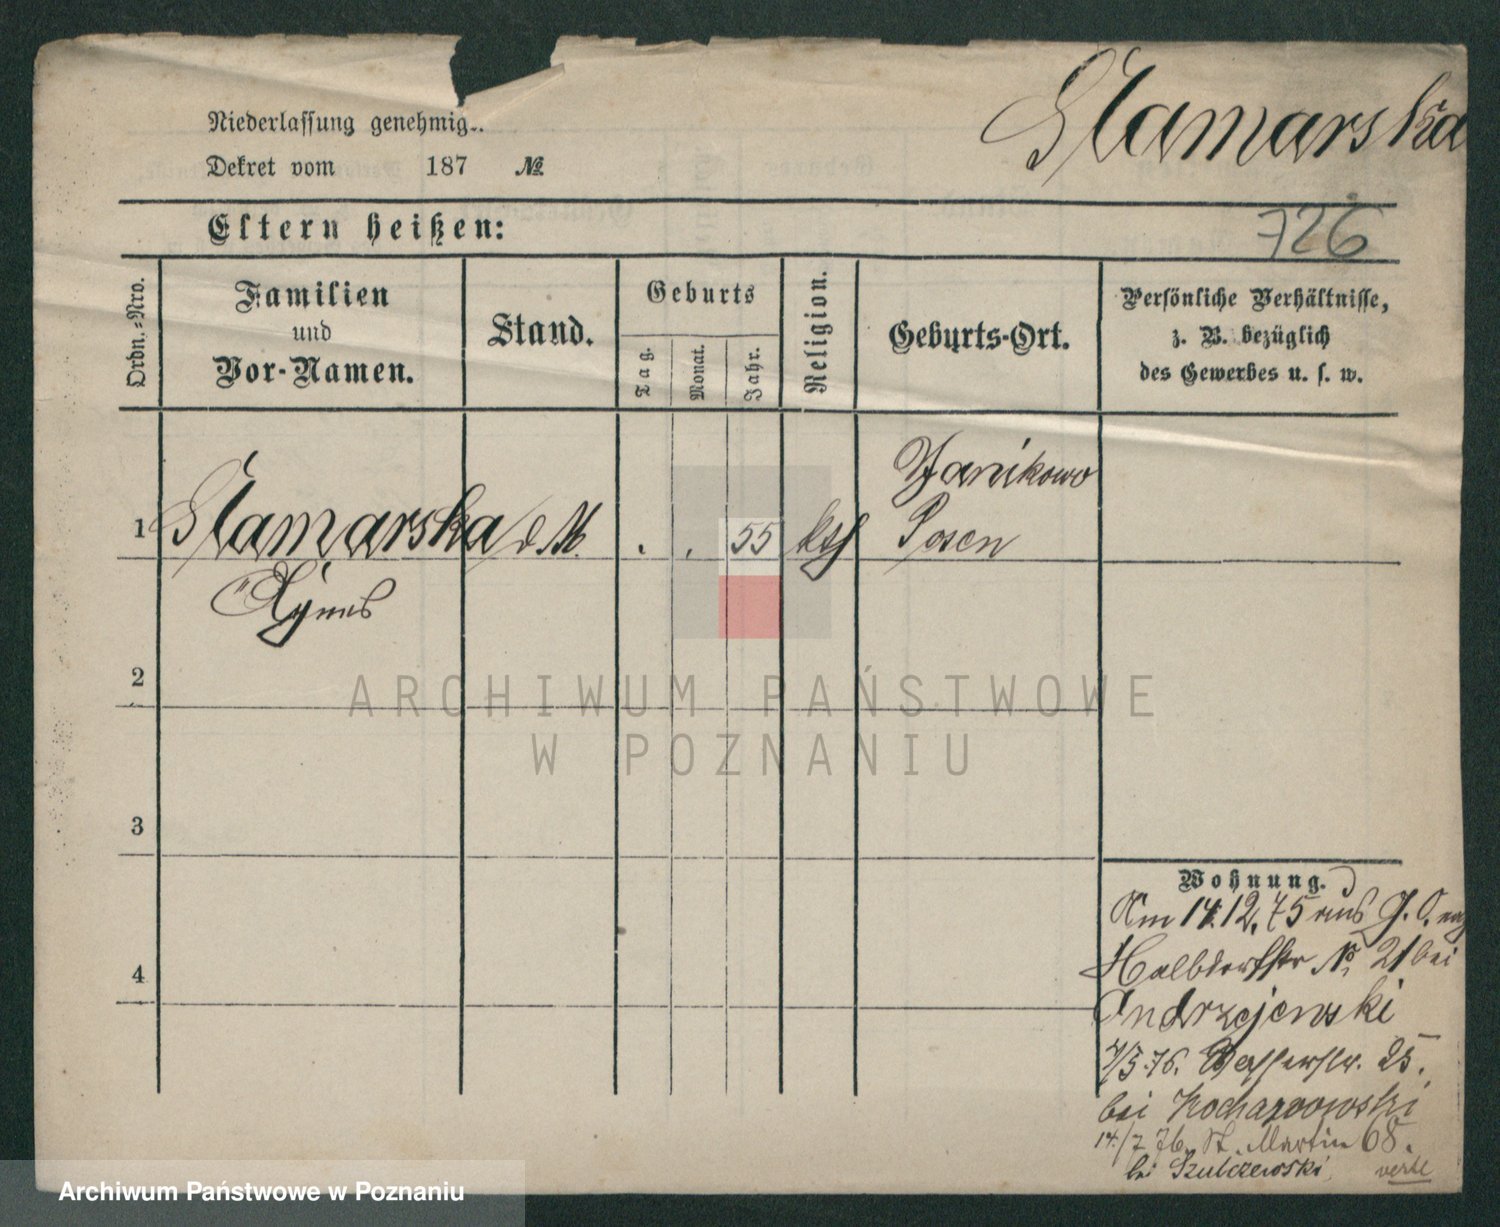 Niederlassung genehmig..
Dekret vom 187 №
Stamarska
726
Eltern heißen:
Ordn.-Nro.
Familien
und
Vor-Namen.
Stand.
Geburts
Tag.
Monat.
Jahr.
Religion.
Geburts-Ort.
Persönliche Verhältnisse,
z. B. bezüglich
des Gewerbes u. s. w.
1 Stamarska d M. . . 55 kth Janikowo
Posen
Agnes
2
3
4
ARCHIWUM PAŃSTWOWE
W POZNANIU
Wohnung.
Am 14.12.75 aus G. O. nach
Halbdorfstr № 21 bei
Andrzejewski
4/5.76. Wasserstr. 25.
bei Kochanowski
14/7 76. St. Martin 68.
bei Szulczewski.
verte
Archiwum Państwowe w Poznaniu